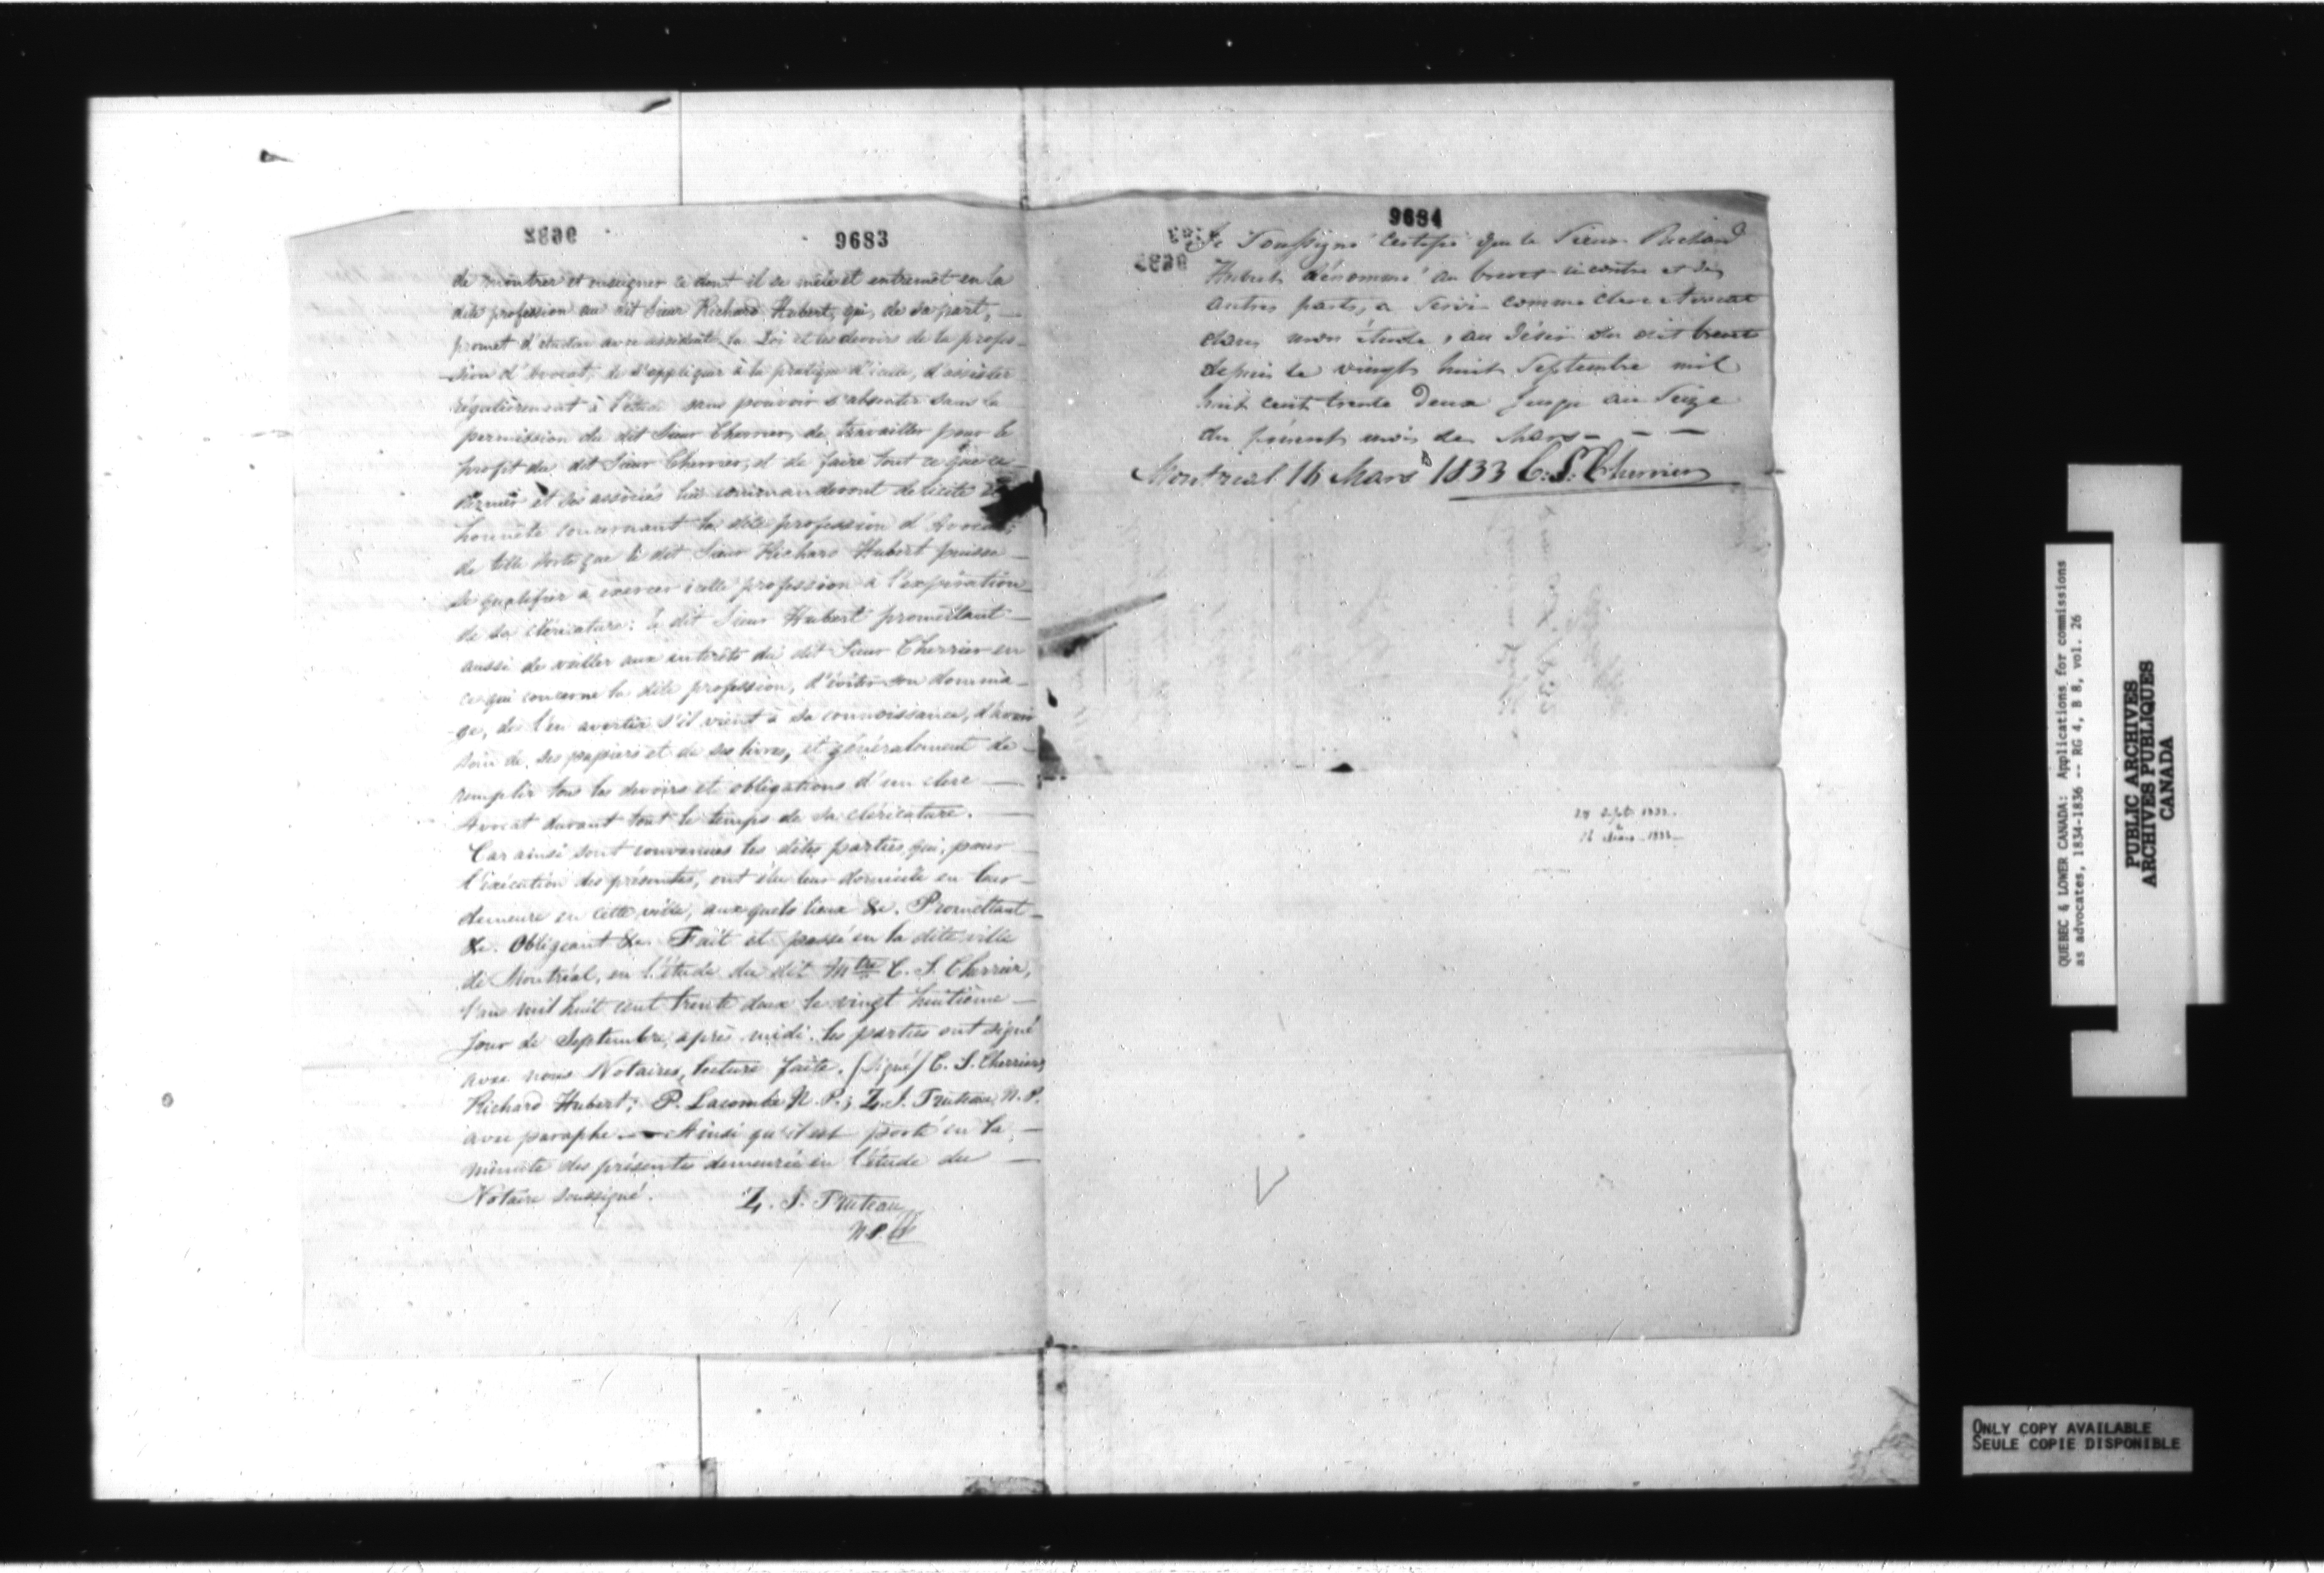 9683
de montrer et enseigner ce dont il se mêle et entremêt en la
dite profession au dit Sieur Richard Hubert, qui, de sa part,
promet d'étudier avec assiduité la Loi et les devoirs de la profes-
-sion d'avocat, de s'appliquer à la pratique d'icelle, d'assister
régulièrement à l'étude sans pouvoir s'absenter sans la
permission du dit Sieur Cherrier, de travailler pour le
profit du dit Sieur Cherrier, et de faire tout ce que ce
dernier et ses associés lui commanderont de licite
honnête concernant la dite profession d'Avocat;
de telle sorte que le dit Sieur Richard Hubert puisse
se qualifier à exercer icelle profession à l'expiration
de sa cléricature: le dit Sieur Hubert promettant
aussi de veiller aux intérêts du dit Sieur Cherrier en
ce qui concerne la dite profession, d'éviter son domma-
-ge, de l'en avertir s'il vient à sa connoissance, d'avoir
soin de ses papiers et de ses livres, et généralement de
remplir tous les devoirs et obligations d'un clerc
Avocat durant tout le temps de sa cléricature.
Car ainsi sont convenues les dites parties qui, pour
l'exécution des présentes, ont élu leur domicile en leur
demeure en cette ville, auxquels lieux &c. Promettant
&c. Obligeant &c. Fait et passé en la dite ville
de Montréal, en l'étude du dit Mtre C. S. Cherrier,
l'an mil huit cent trente deux le vingt huitième
jour de Septembre, après-midi. les parties ont signé
avec nous Notaires, lecture faite. (Signé) C. S. Cherrier,
Richard Hubert; P. Lacombe N. P.; Z. J. Truteau, N. P.
avec paraphe. — Ainsi qu'il est porté en la
minute des présentes demeurée en l'étude du
Notaire soussigné.
Z. J. Truteau
N.P.
9684
Je Soussigné certifie que le Sieur Richard
Hubert dénommé au brevet ci contre et des
autres parts, a servi comme clerc Avocat
dans mon étude, au désir du dit brevet
depuis le vingt huit Septembre mil
huit cent trente deux jusqu'au Seize
du présent mois de Mars - - -
Montreal 16 Mars 1833 C. S. Cherrier
28 Sept. 1832.
à
16 Mars 1833
QUEBEC & LOWER CANADA: Applications for commissions
as advocates, 1834-1836 -- RG 4, B 8, vol. 26
PUBLIC ARCHIVES
ARCHIVES PUBLIQUES
CANADA
ONLY COPY AVAILABLE
SEULE COPIE DISPONIBLE